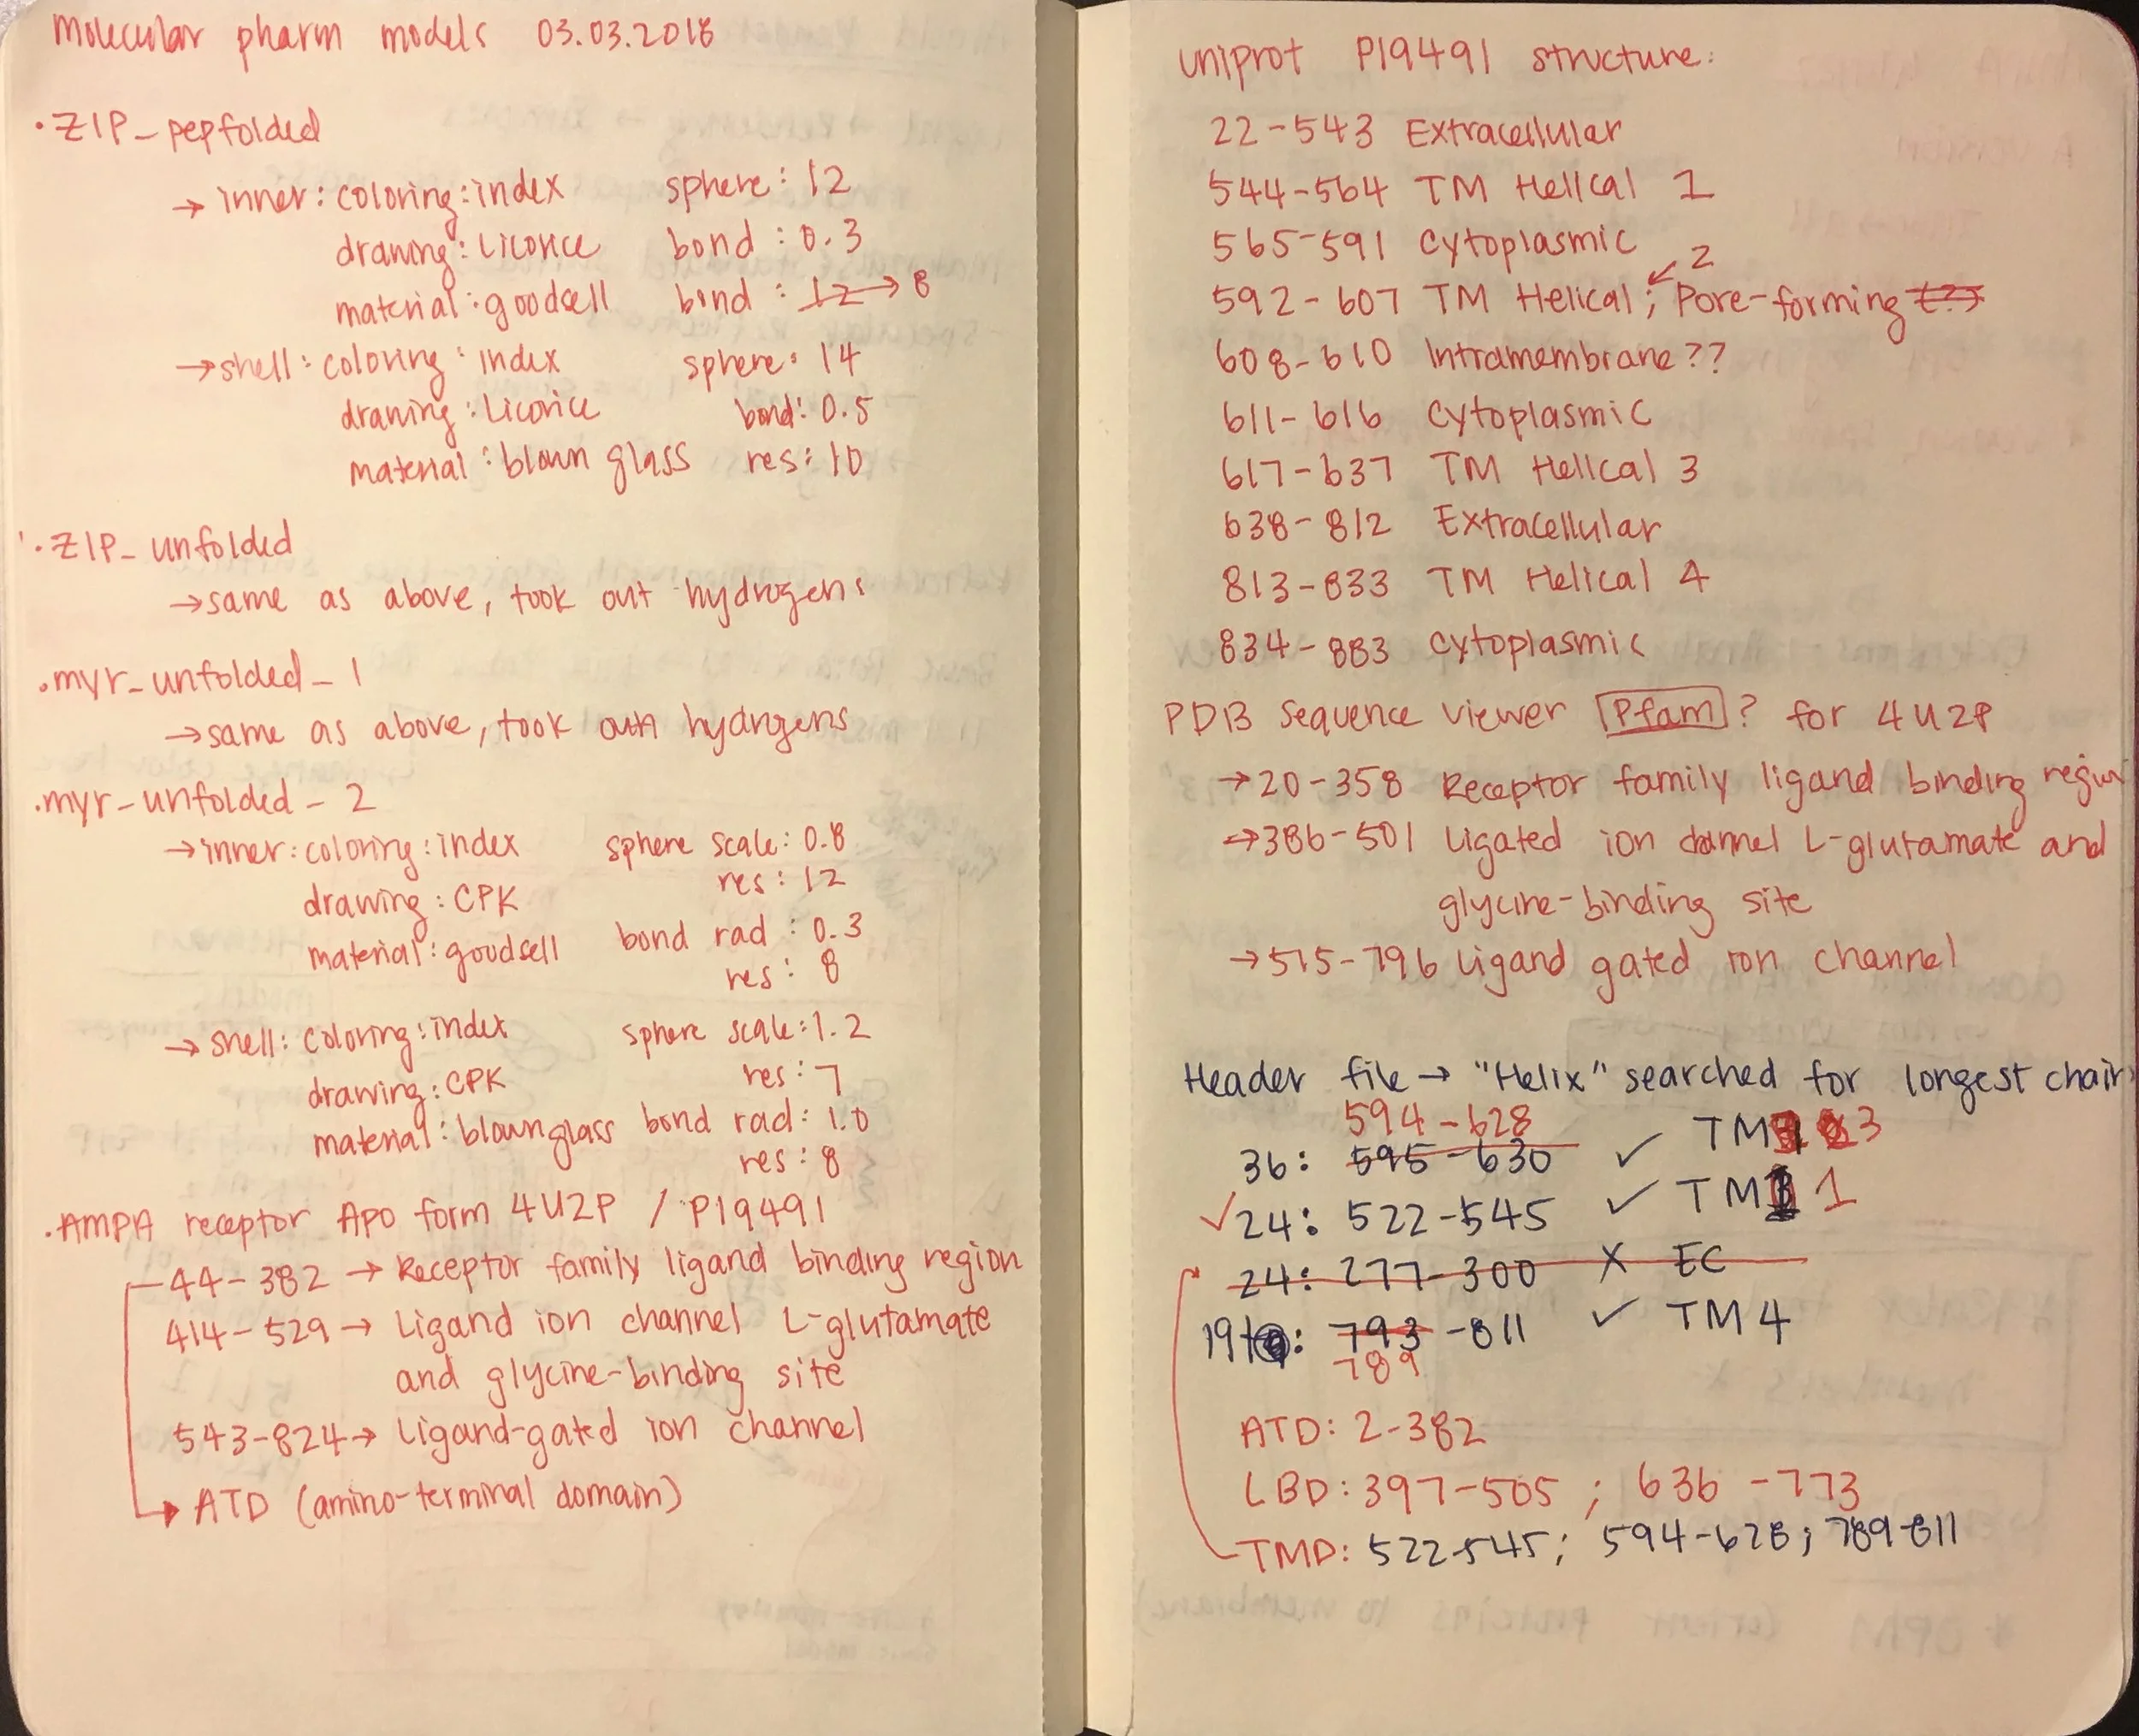 Molecular pharm models 03.03.2018
· ZIP_pepfolded
→ inner: coloring: index sphere: 12
drawing: Licorice bond: 0.3
material: goodsell bond: 12 → 8
→ shell: coloring: index sphere: 14
drawing: Licorice bond: 0.5
material: blown glass res: 10
· ZIP_unfolded
→ same as above, took out hydrogens
· myr_unfolded_1
→ same as above, took out hydrgens
· myr_unfolded_2
→ inner: coloring: index sphere scale: 0.8
res: 12
drawing: CPK
bond rad: 0.3
material: goodsell
res: 8
→ shell: coloring: index sphere scale: 1.2
res: 7
drawing: CPK
material: blownglass bond rad: 1.0
res: 8
· AMPA receptor Apo form 4U2P / P19491
44-382 → Receptor family ligand binding region
414-529 → Ligand ion channel L-glutamate
and glycine-binding site
543-824 → Ligand-gated ion channel
→ ATD (amino-terminal domain)
uniprot P19491 structure:
22-543 Extracellular
544-564 TM Helical 1
565-591 Cytoplasmic
2
592-607 TM Helical; Pore-forming
608-610 Intramembrane??
611-616 Cytoplasmic
617-637 TM Helical 3
638-812 Extracellular
813-833 TM Helical 4
834-883 Cytoplasmic
PDB Sequence Viewer Pfam? for 4U2P
→ 20-358 Receptor family ligand binding region
→ 386-501 Ligated ion channel L-glutamate and
glycine-binding site
→ 515-796 Ligand gated ion channel
Header file → "Helix" searched for longest chain
594-628
36: 595-630 ✓ TM 3
✓ 24: 522-545 ✓ TM 1
24: 277-300 X EC
19: 793-811 ✓ TM4
789
ATD: 2-382
LBD: 397-505; 636-773
TMD: 522-545; 594-628; 789-811